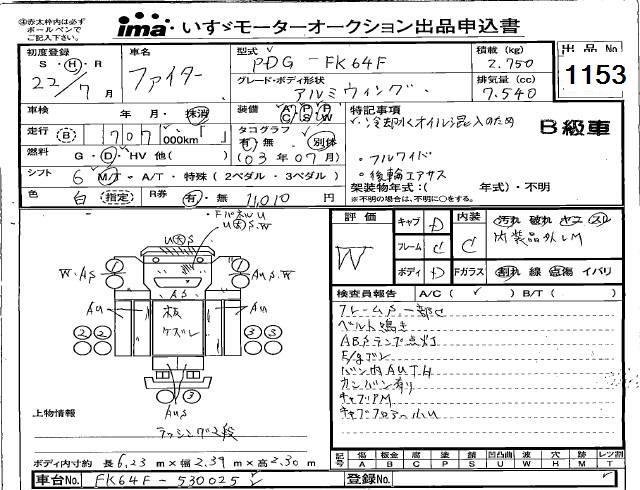 ④赤太枠内は必ず
ボールペンで
ご記入下さい。
ima いすゞモーターオークション出品申込書
初度登録 車名 型式 積載(kg) 出品No
S・H・R 22/7月 ファイター PDG-FK64F 2.750 1153
グレード・ボディ形状 排気量(cc)
アルミウィング 7.540
車検 年 月・抹消 装備 A/C P/S P/W 特記事項
冷却水オイル混入のため B級車
走行 (B) 707 000km タコグラフ 有・無 別体
燃料 G・D・HV 他( ) (03年07月) ・フルワイド
シフト 6 M/T・A/T・特殊(2ペダル・3ペダル) ・後輪エアサス
架装物年式:( 年式)・不明
※不明の場合は、不明に○をする。
色 白 指定 R券 有・無 11,010 円
評価 W
キャブ D 内装 汚れ 破れ ヤケ スレ
フレーム C C 内装品外しM
ボディ D Fガラス 割れ 線 点傷 イバリ
検査員報告 A/C( ✓ ) B/T( )
フレームS一部C
ベルト鳴き
ABSランプ点灯
E/gブレ
バン内AUTH
カンバン有り
キャブアM
W・AS
AU
AS
板
ケズレ
AU
② ②
③ ③
③
AUS
上物情報
ラッシング2段
ボディ内寸約 長6.23m×幅2.39m×高2.30m
記号 傷 板金 腐 塗 錆 凹凸曲 波 穴 跡 レンズ割
A B C P S U W H M T
車台No. FK64F-530025
登録No.